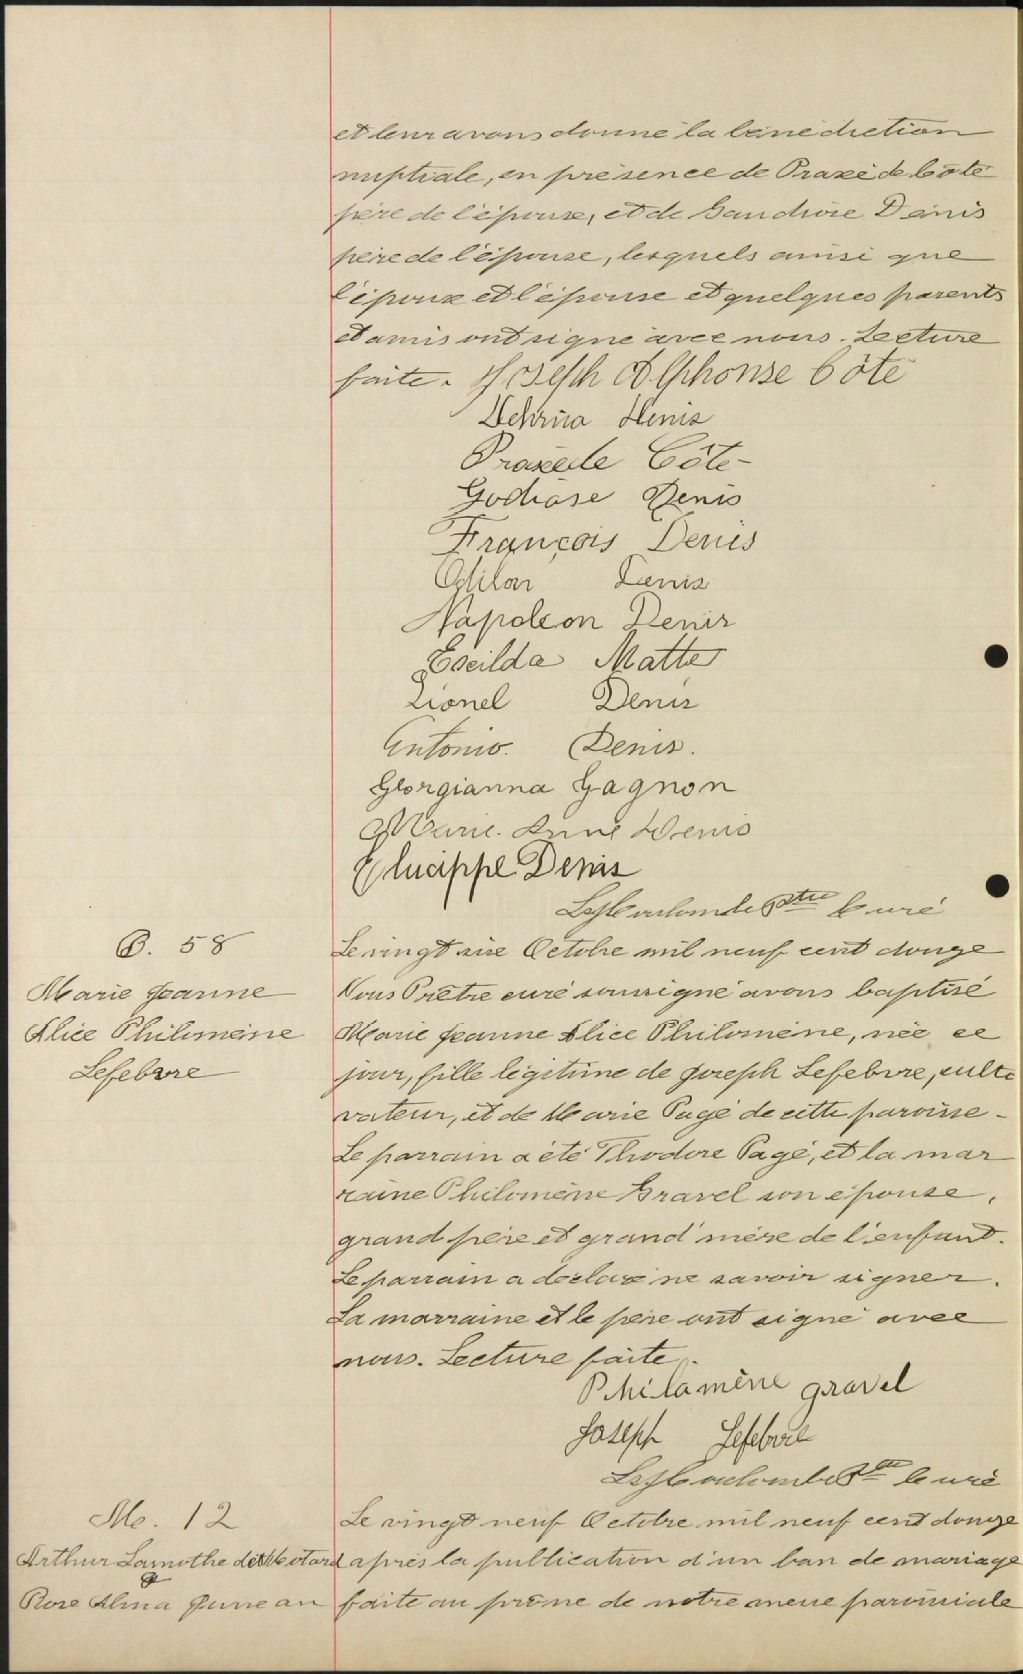 et leur avons donné la bénédiction
nuptiale, en présence de Praxède Côté
père de l'époux, et de Gaudiose Denis
père de l'épouse, lesquels ainsi que
l'époux et l'épouse et quelques parents
et amis ont signé avec nous. Lecture
faite. Joseph Alphonse Côté
Denis
Praxède Côté
Godiose Denis
François Denis
Odilon Denis
Napoleon Denis
Exeilda Matte
Lionel Denis
Antonio. Denis.
Georgianna Gagnon
Marie. Anne Denis
Denis
Ptre Curé
B. 58
Marie Jeanne
Alice Philomène
Lefebvre
Le vingt six Octobre mil neuf cent douze
Nous Prêtre curé soussigné avons baptisé
Marie Jeanne Alice Philomène, née ce
jour, fille légitime de Joseph Lefebvre, culti
vateur, et de Marie Pagé de cette paroisse -
Le parrain a été Théodore Pagé, et la mar
raine Philomène Gravel son épouse,
grand père et grand'mère de l'enfant.
Le parrain a déclaré ne savoir signer.
La marraine et le père ont signé avec
nous. Lecture faite.
Philamène gravel
Joseph Lefebvre
Ptre Curé
M. 12
Arthur Lamothe dit Cotard
&
Rose Alma Juneau
Le vingt neuf Octobre mil neuf cent douze
après la publication d'un ban de mariage
faite au prône de notre messe paroissiale